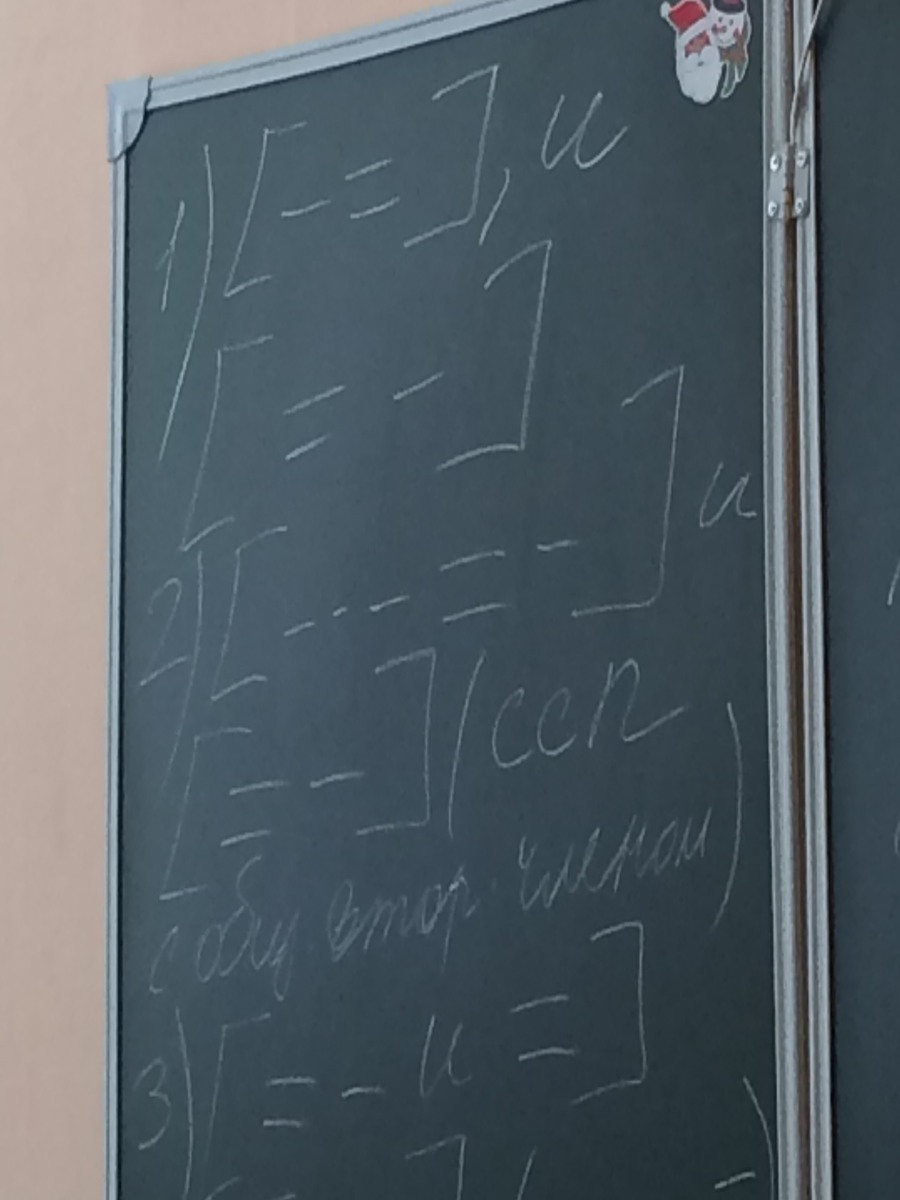 1) [ - = ], и
[ = - ]
2) [ --- = - ] и
[ = - ] (ССП
с общ втор. членом)
3) [ = - и = ]